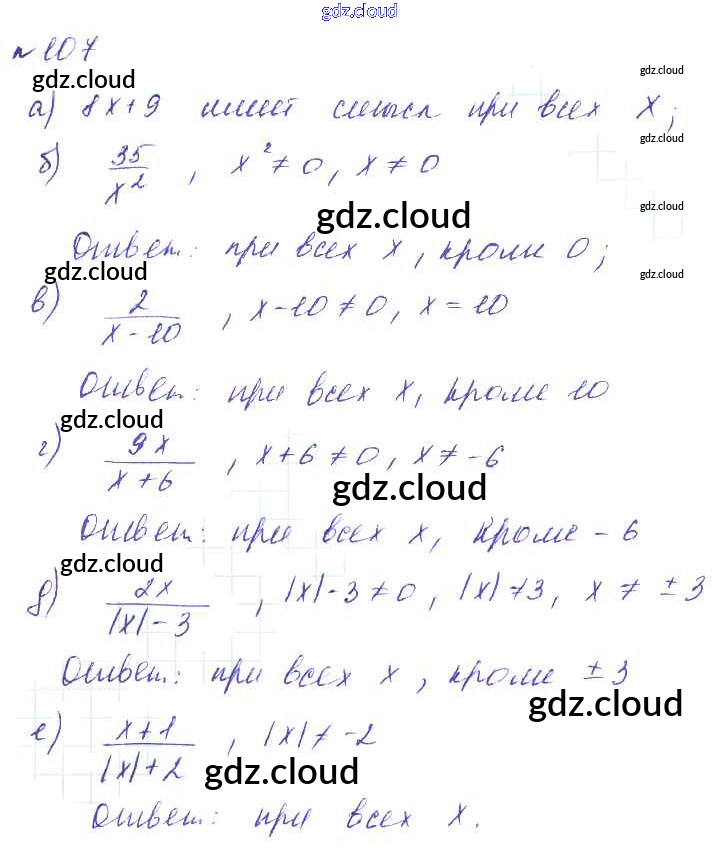 gdz.cloud
№ 107
gdz.cloud gdz.cloud
а) 8x+9 имеет смысл при всех x;
gdz.cloud
б) 35/x², x² ≠ 0, x ≠ 0
gdz.cloud gdz.cloud
Ответ: при всех x, кроме 0;
gdz.cloud gdz.cloud
в) 2/(x-10), x-10 ≠ 0, x = 10
Ответ: при всех x, кроме 10
gdz.cloud
г) 9x/(x+6), x+6 ≠ 0, x ≠ -6
gdz.cloud
Ответ: при всех x, кроме -6
gdz.cloud
д) 2x/(|x|-3), |x|-3 ≠ 0, |x| ≠ 3, x ≠ ±3
Ответ: при всех x, кроме ±3
gdz.cloud
е) (x+1)/(|x|+2), |x| ≠ -2
gdz.cloud
Ответ: при всех x.